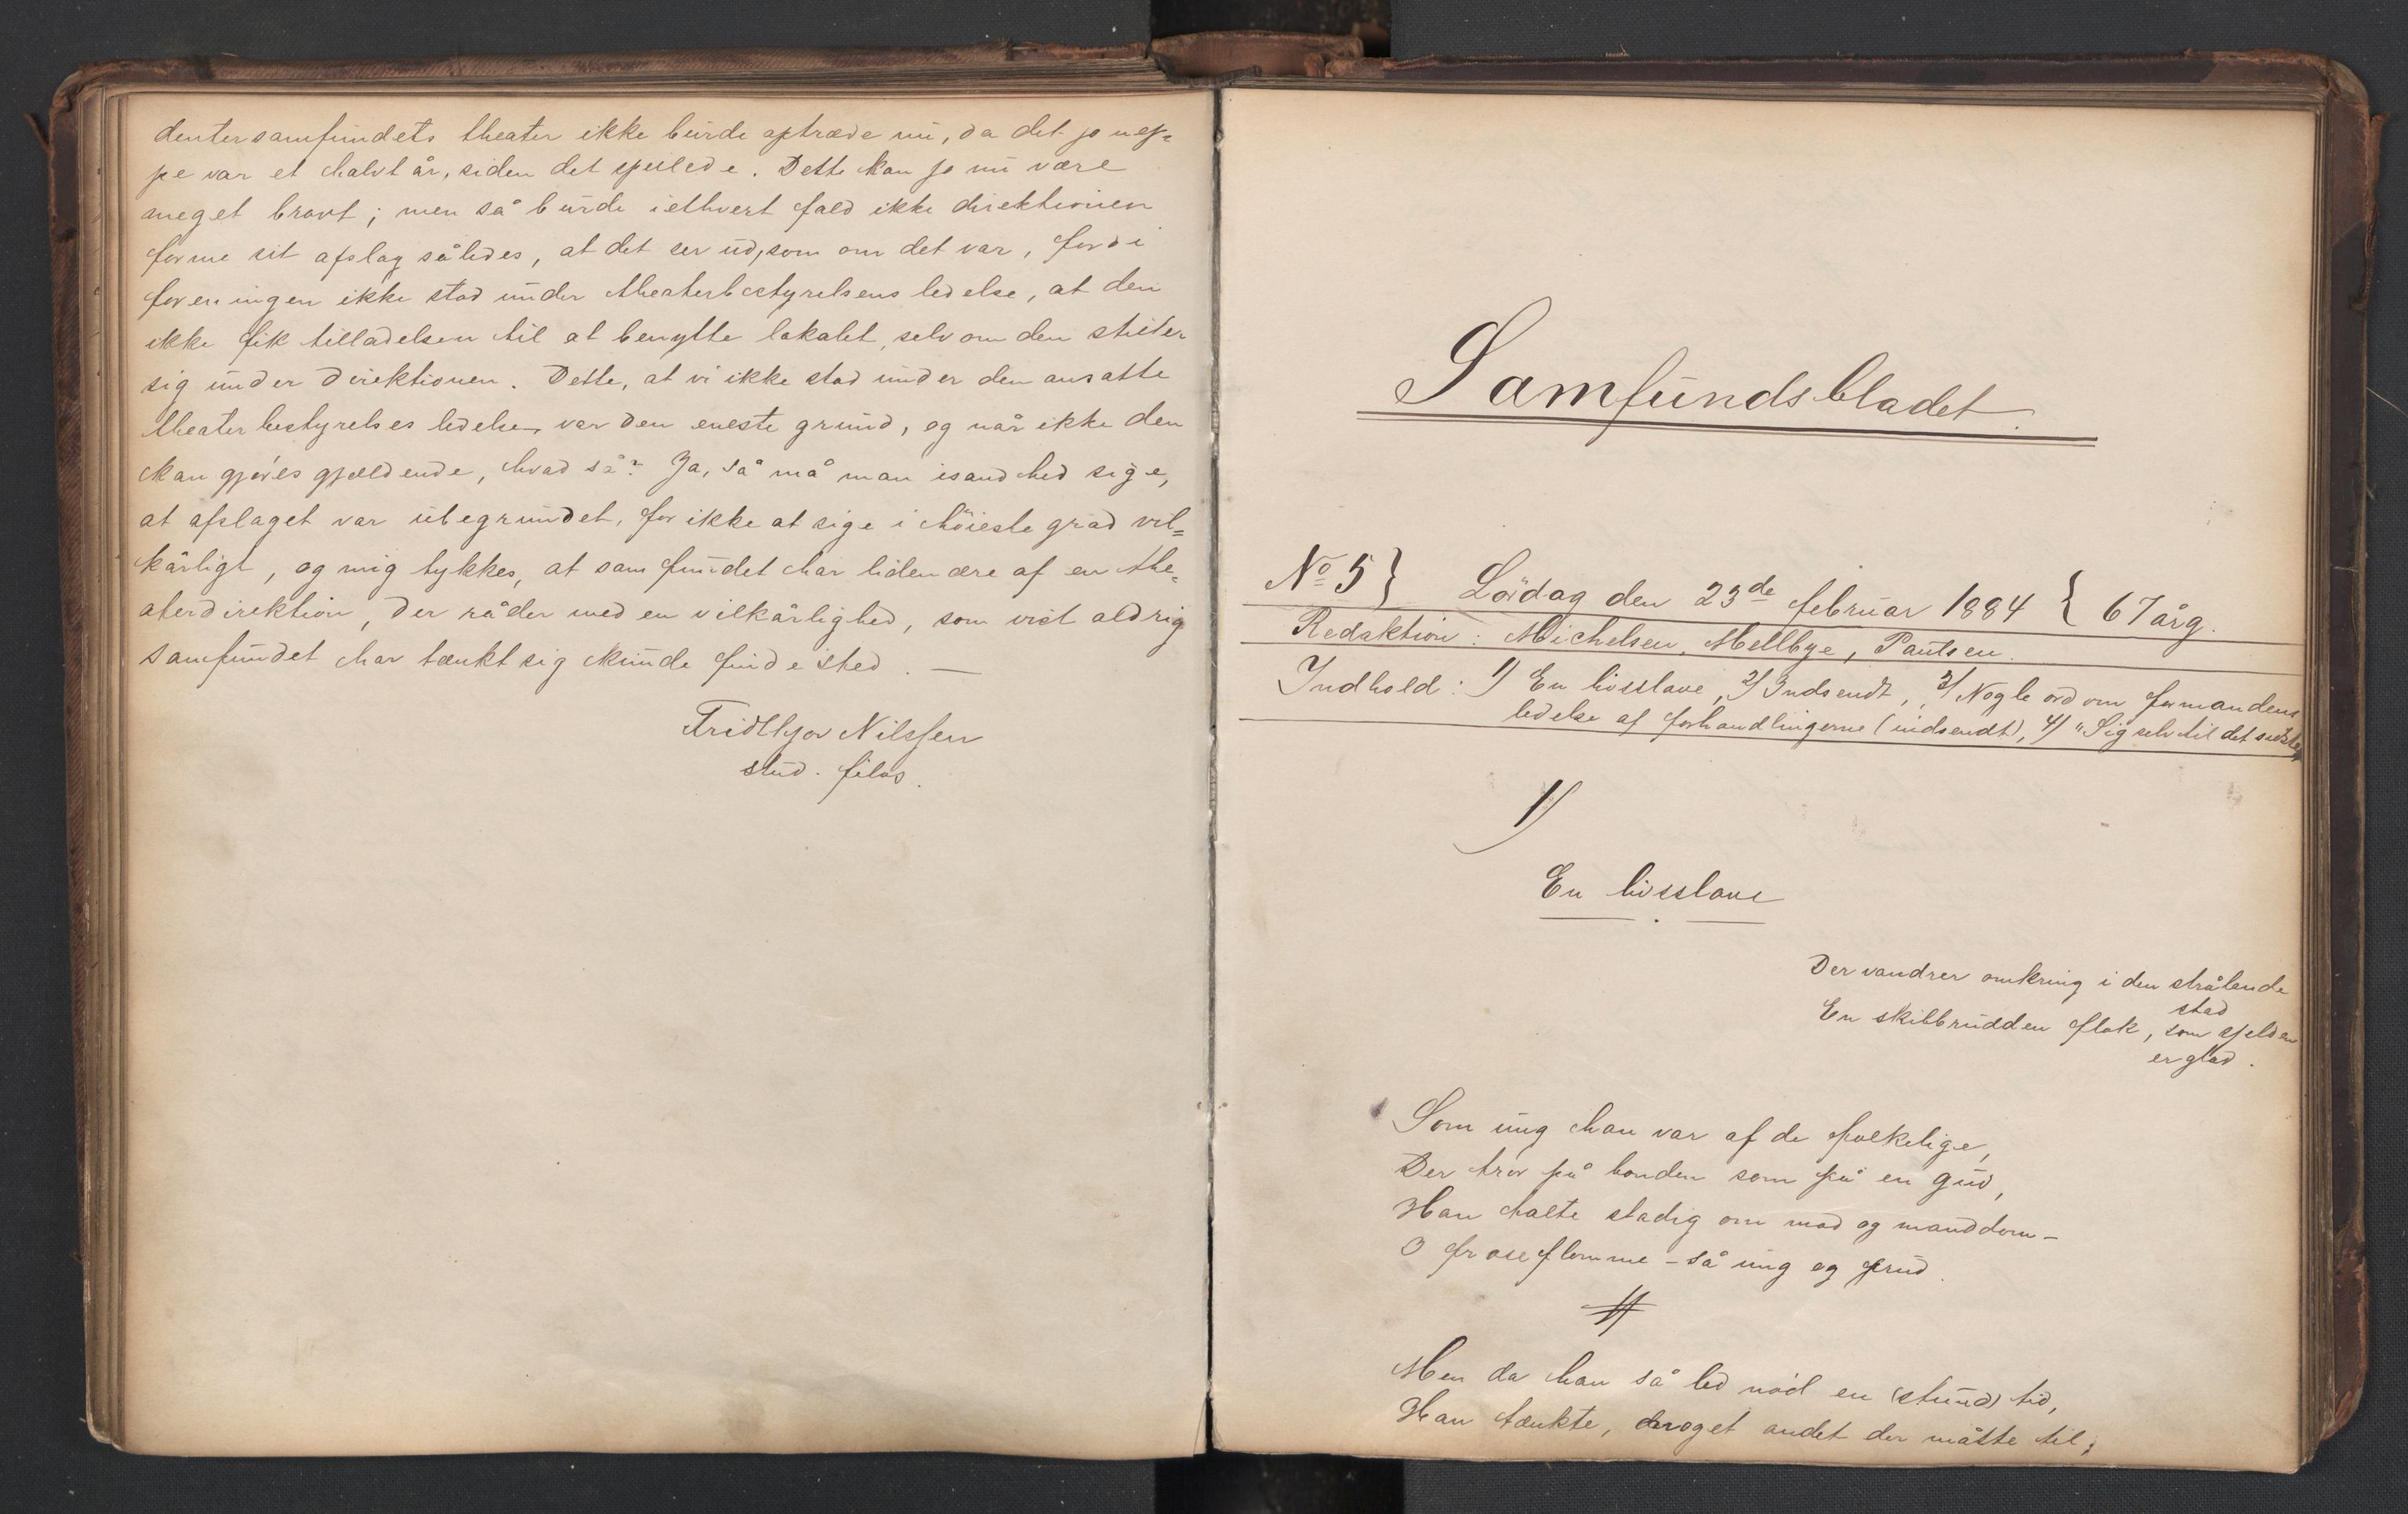 dentersamfundets theater ikke burde optræde nu, da det jo nep=
pe var et halvt år, siden det spillede. Dette kan jo nu være
meget bravt; men så burde iethvert fald ikke direktionen
forme sit afslag således, at det ser ud, som om det var, fordi
foreningen ikke stod under theaterbestyrelsens ledelse, at den
ikke fik tilladelsen til at benytte lokalet, selv om den stiller
sig under direktionen. Dette, at vi ikke stod under den ansatte
theaterbestyrelses ledelse, var den eneste grund, og når ikke den
kan gjøres gjældende, hvad så? Ja, så må man isandhed sige,
at afslaget var ubegrundet, for ikke at sige i höieste grad vil=
kårligt, og mig tykkes, at samfundet har liden ære af en the=
aterdirektion, der råder med en vilkårlighed, som vist aldrig
samfundet har tænkt sig kunde finde sted. —
Fridthjov Nilssen
stud. filos.
Samfundsbladet.
No 5} Lördag den 23de februar 1884 { 67 årg.
Redaktion: Michelsen, Mellbye, Paulsen.
Indhold: 1) En livsslave, 2) Indsendt, 3) Nogle ord om formandens
ledelse af forhandlingerne (indsendt), 4) "Sig selv til det sidste"
1)
En livsslave
Der vandrer omkring i den strålende
stad
En skibbrudden flok, som sjelden
er glad.
Som ung han var af de folkelige,
Der tror på bonden som på en gud,
Han talte stadig om mod og manddom –
O fraseflomme – så ung og prud.
Men da han så led nød en (stund) tid,
Han tænkte, noget andet der måtte til;